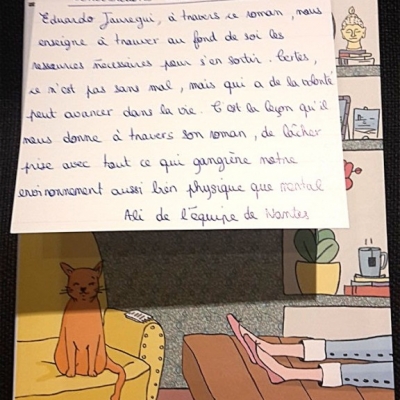 Eduardo Jauregui, à travers ce roman, nous
enseigne à trouver au fond de soi les
ressources nécessaires pour s'en sortir. Certes,
ce n'est pas sans mal, mais qui a de la volonté
peut avancer dans la vie. C'est la leçon qu'il
nous donne à travers son roman, de lâcher
prise avec tout ce qui gangrène notre
environnement aussi bien physique que mental
Ali de l'équipe de Nantes